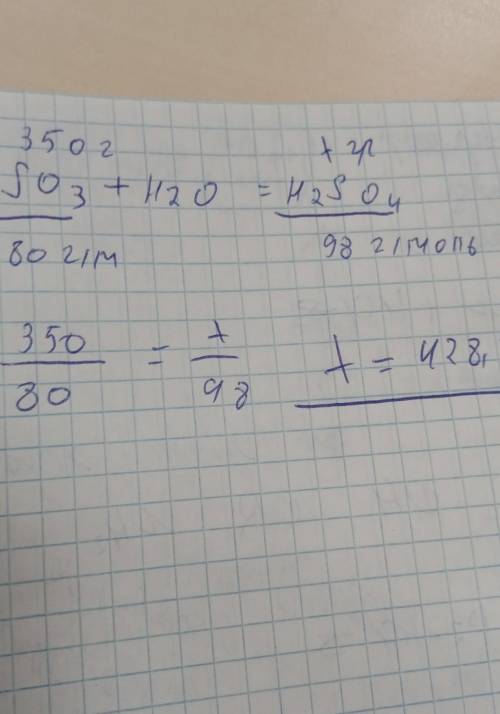 350 г х гр
SO3 + H2O = H2SO4
80 г/м 98 г/моль
350/80 = х/98 х = 428,